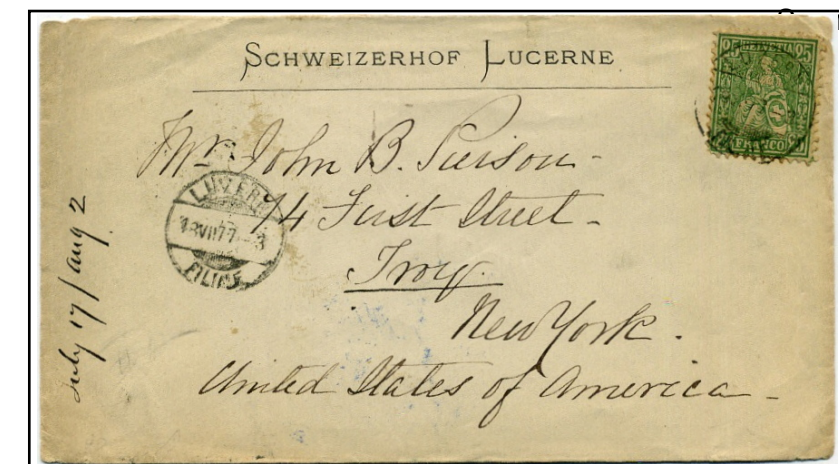 SCHWEIZERHOF LUCERNE
25 HELVETIA 25
FRANCO
Mr. John B. Pierson -
74 First Street -
Troy.
New York.
United States of America -
LUZERN
18 VII 77 - 3
FILIALE
July 17 / Aug 2